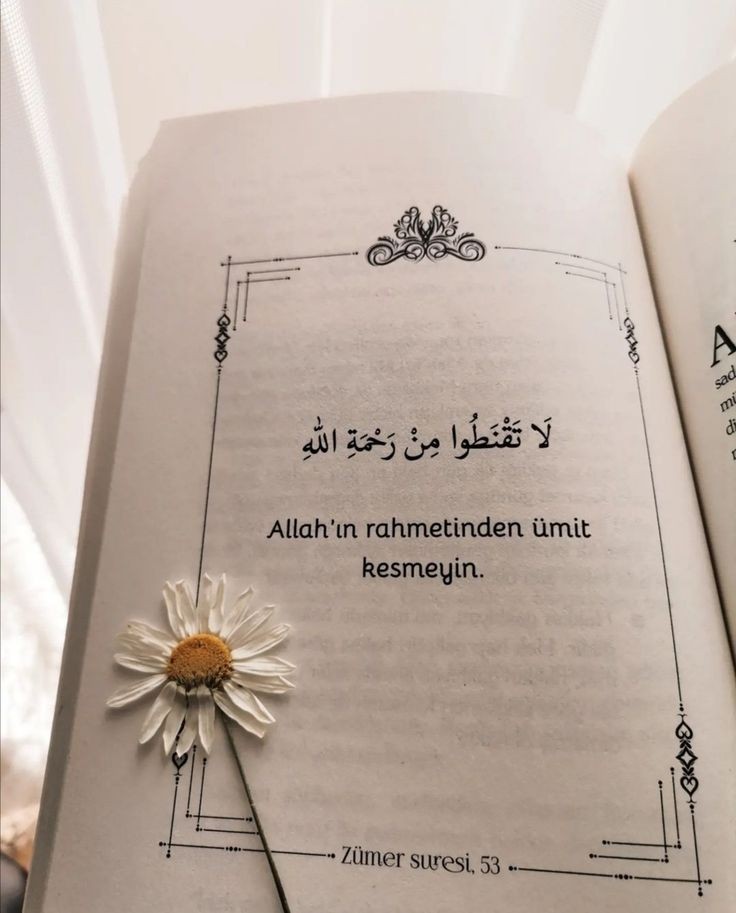 لَا تَقْنَطُوا مِنْ رَحْمَةِ اللهِ
Allah'ın rahmetinden ümit
kesmeyin.
Zümer suresi, 53